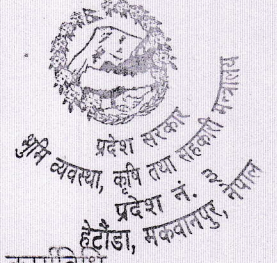 प्रदेश सरकार
भूमि व्यवस्था, कृषि तथा सहकारी मन्त्रालय
प्रदेश नं. ३
हेटौंडा, मकवानपुर, नेपाल
कार्यविधि